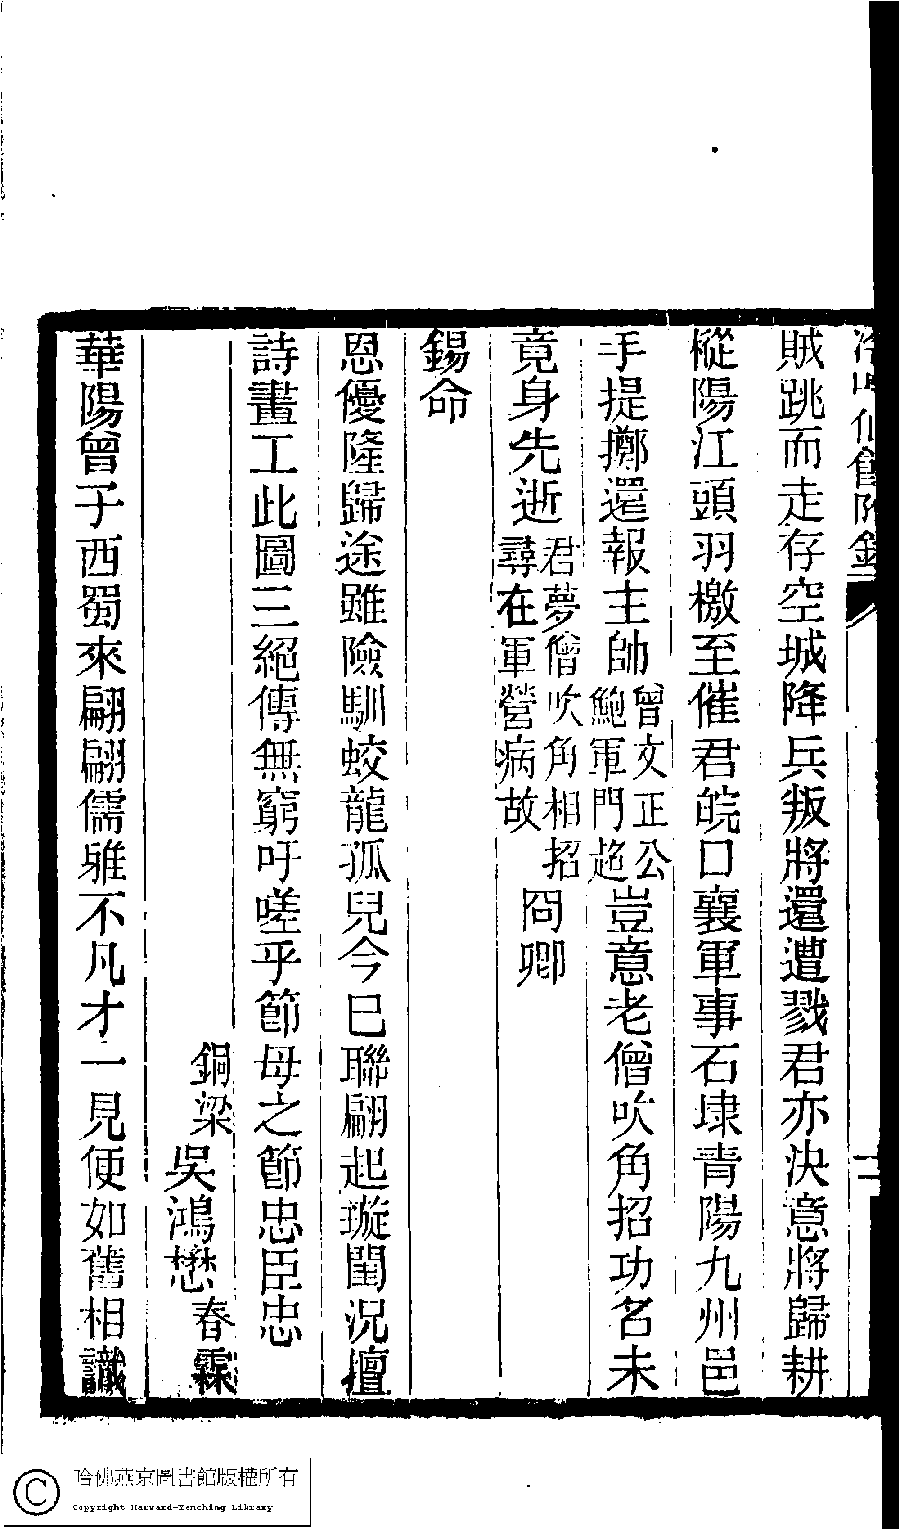 賊跳而走存空城降兵叛將還遭戮君亦決意將歸耕
樅陽江頭羽檄至催君皖口襄軍事石埭青陽九州邑
手提擲還報主帥曾文正公鮑軍門超豈意老僧吹角招功名未
竟身先逝君夢僧吹角相招尋在軍營病故冏卿
錫命
恩優隆歸途雖險馴蛟龍孤兒今已聯翩起璇閨況擅
詩畫工此圖三絕傳無窮吁嗟乎節母之節忠臣忠
銅梁吳鴻懋春霖
華陽曾子西蜀來翩翩儒雅不凡才一見便如舊相識
哈佛燕京圖書館版權所有
Copyright Harvard-Yenching Library